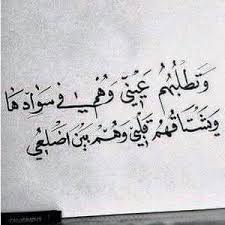 وَتَطلبُهُم عَيْني وَهُمْ في سَوَادِهَا
وَيَشْتَاقُهُمْ قَلْبي وَهُمْ بَيْنَ اضْلعُي